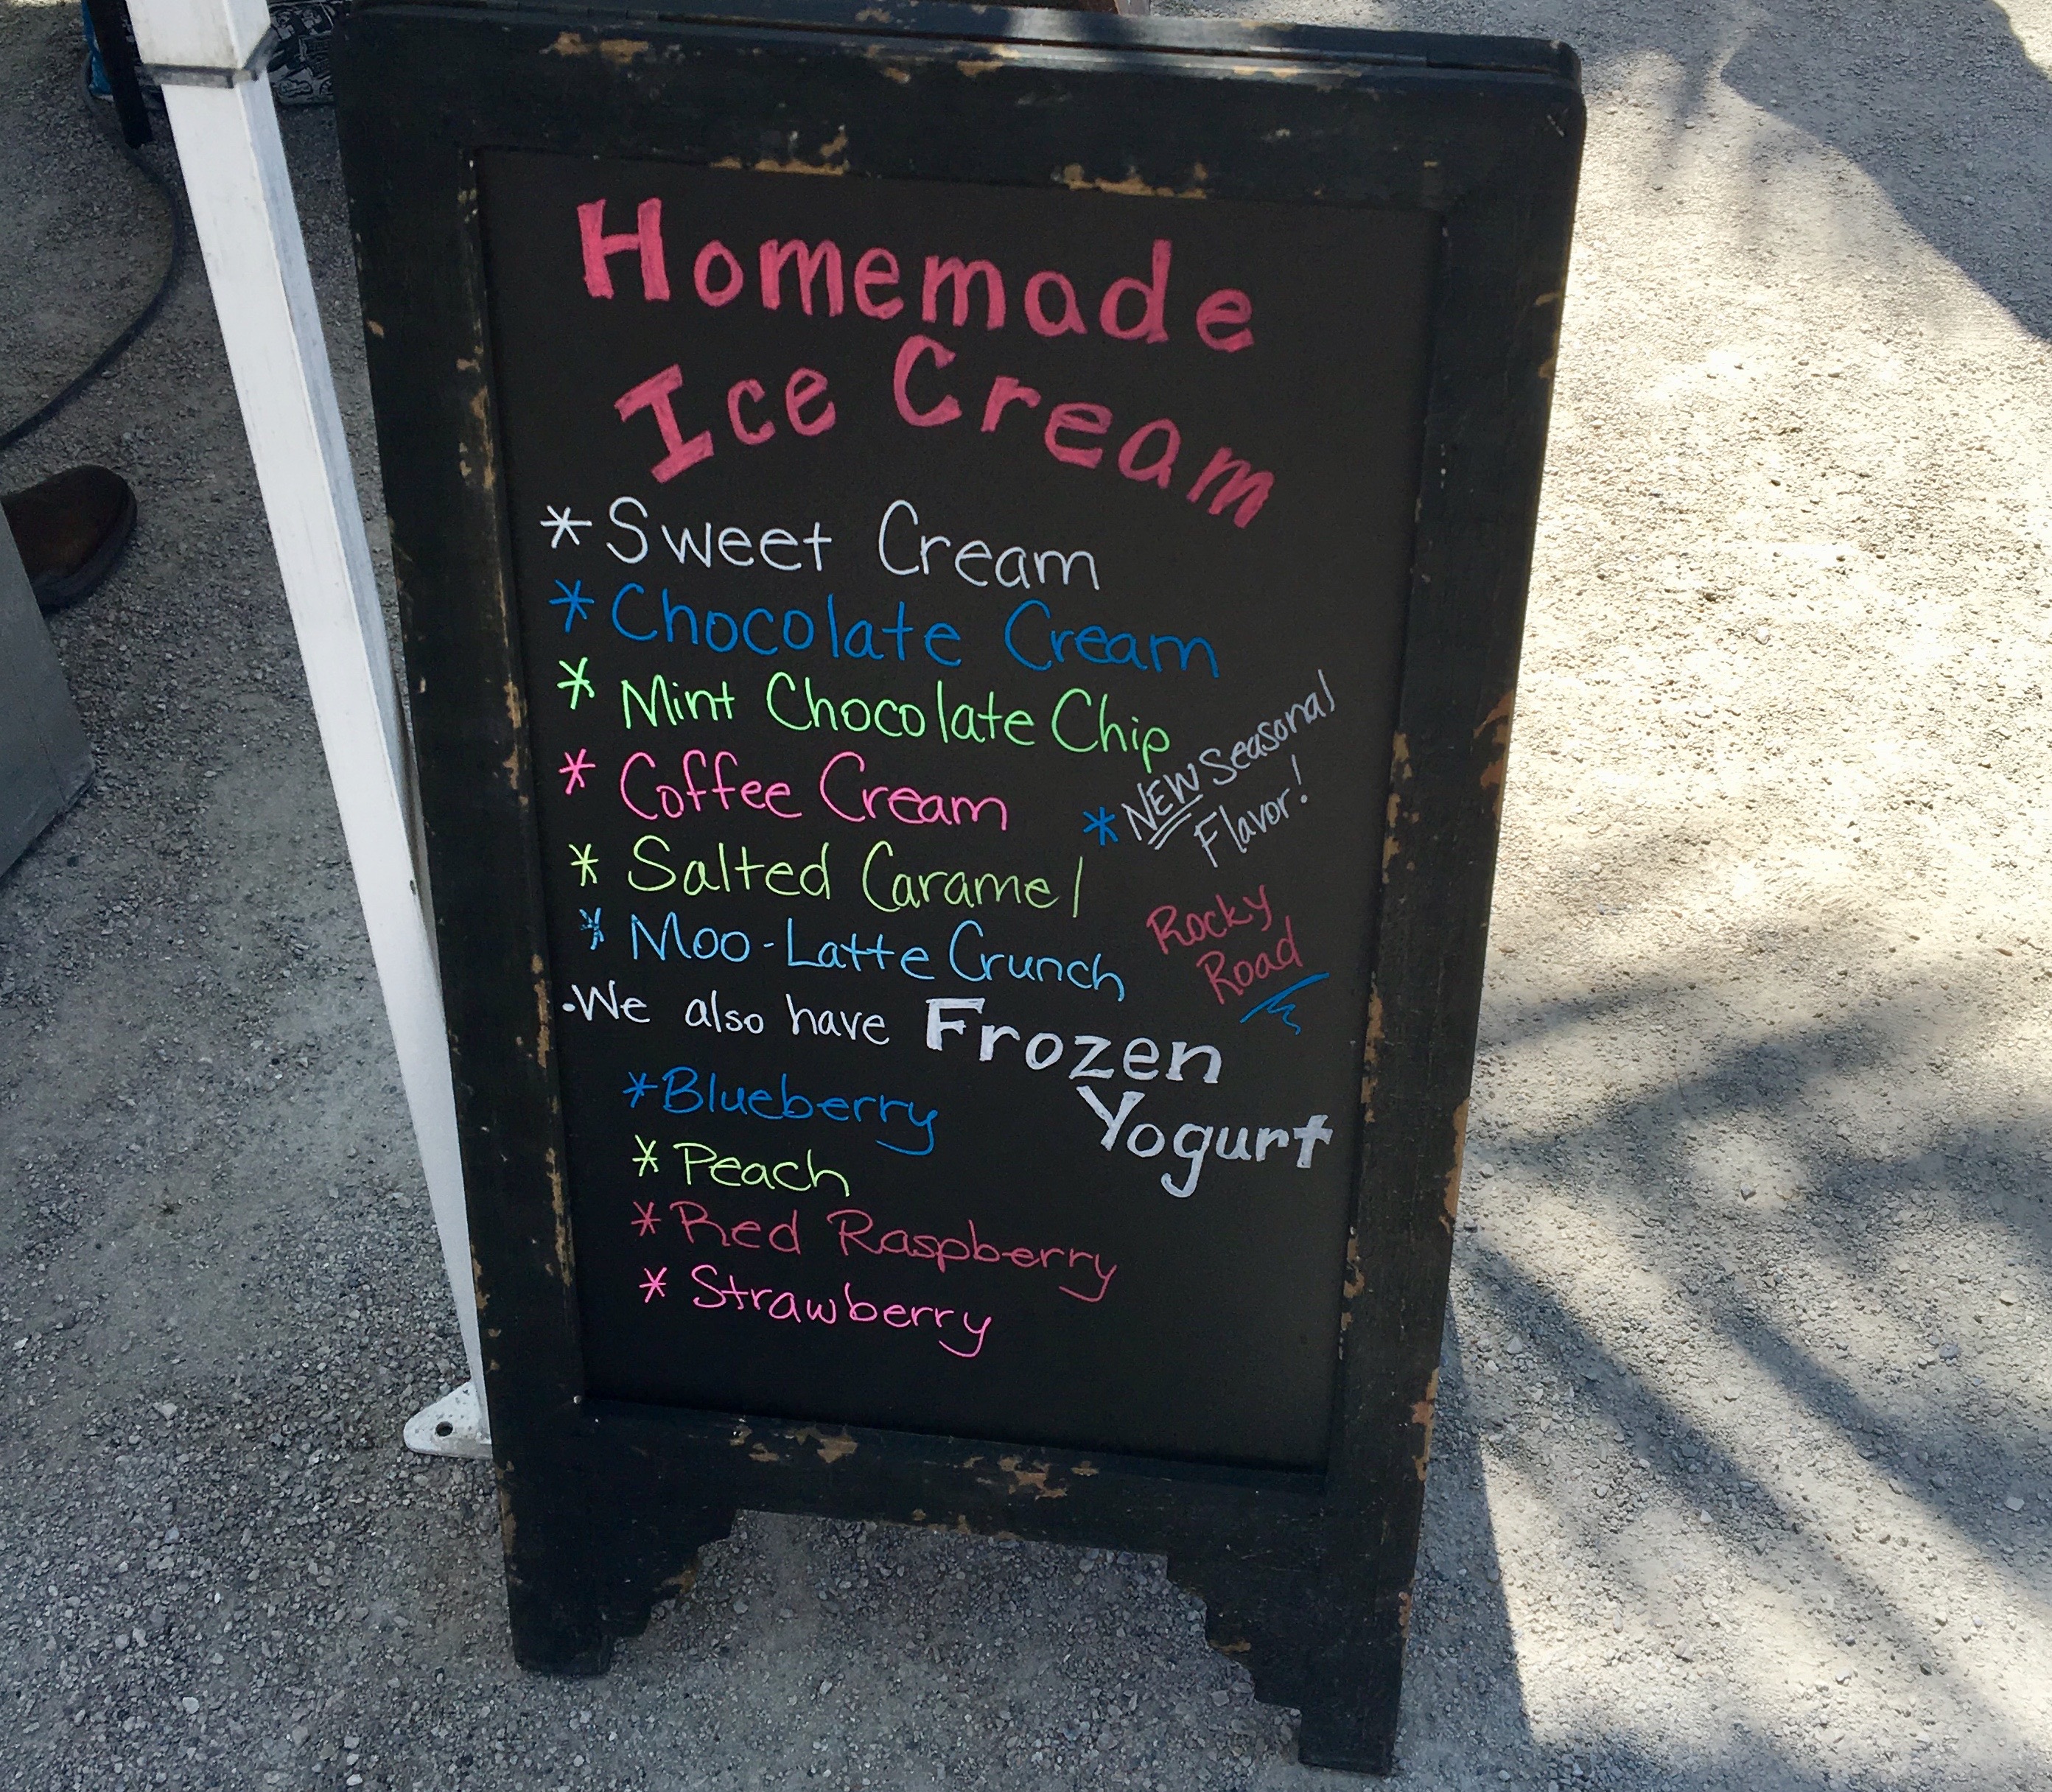 Homemade
Ice Cream
* Sweet Cream
* Chocolate Cream
* Mint Chocolate Chip
* Coffee Cream
* Salted Caramel
* Moo-Latte Crunch
* NEW Seasonal
Flavor!
Rocky
Road
·We also have Frozen
Yogurt
* Blueberry
* Peach
* Red Raspberry
* Strawberry